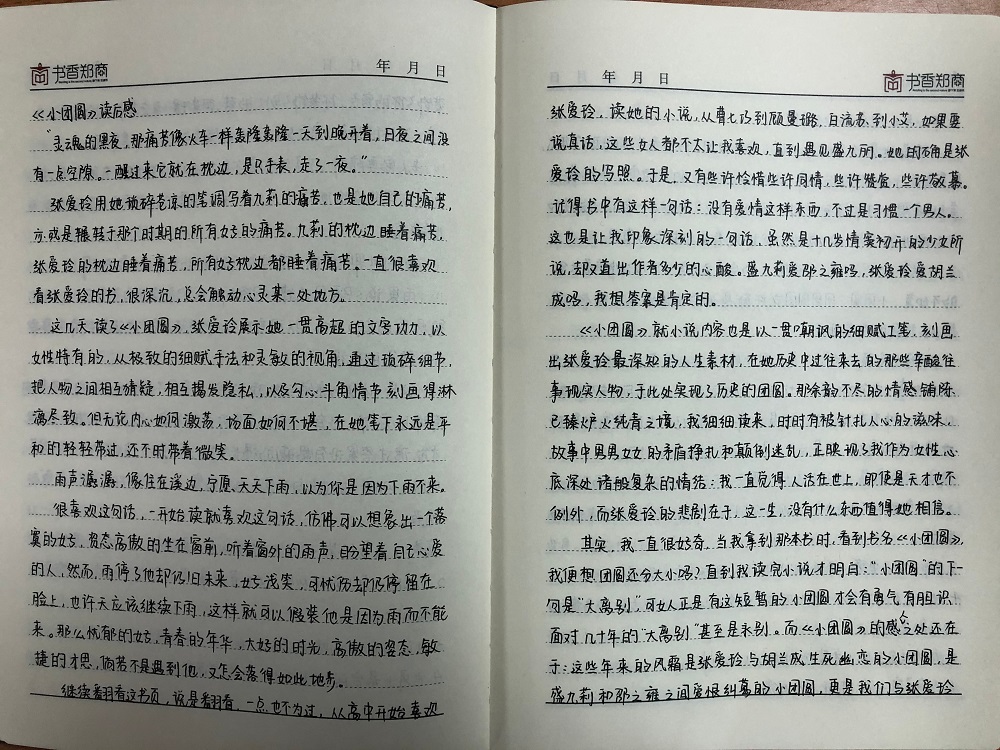 书香郑商
年 月 日
《小团圆》读后感
"灵魂的黑夜，那痛苦像火车一样轰隆轰隆一天到晚开着，日夜之间没
有一点空隙。一醒过来它就在枕边，是只手表，走了一夜。"
张爱玲用她琐碎苍凉的笔调写着九莉的痛苦，也是她自己的痛苦，
亦或是辗转于那个时期的所有女子的痛苦。九莉的枕边睡着痛苦，
张爱玲的枕边睡着痛苦，所有女子枕边都睡着痛苦。一直很喜欢
看张爱玲的书，很深沉，总会触动心灵某一处地方。
这几天读了《小团圆》，张爱玲展示她一贯高超的文字功力，以
女性特有的，从极致的细腻手法和灵敏的视角，通过琐碎细节，
把人物之间相互猜疑，相互揭发隐私，以及勾心斗角情节刻画得淋
漓尽致。但无论内心如何激荡，场面如何不堪，在她笔下永远是平
和的轻轻带过，还不时带着微笑。
雨声潺潺，像住在溪边，宁愿天天下雨，以为你是因为下雨不来。
很喜欢这句话，一开始读就喜欢这句话，仿佛可以想象出一个落
寞的女子，姿态高傲的坐在窗前，听着窗外的雨声，盼望着自己心爱
的人，然而，雨停了他却仍旧未来，女子浅笑，可忧伤却仍停留在
脸上，也许天应该继续下雨，这样就可以假装他是因为雨而不能
来。那么忧郁的女子，青春的年华，大好的时光，高傲的姿态，敏
捷的才思，倘若不是遇到他，又怎会落得如此地步。
继续翻看这书页，说是翻看，一点也不为过，从高中开始喜欢
年 月 日
书香郑商
张爱玲，读她的小说，从曹七巧到顾曼璐，白流苏到小艾，如果要
说真话，这些女人都不太让我喜欢，直到遇见盛九莉。她的确是张
爱玲的写照。于是，又有些许怜惜些许同情，些许赞叹，些许敬慕。
记得书中有这样一句话：没有爱情这样东西，不过是习惯一个男人。
这也是让我印象深刻的一句话，虽然是十几岁情窦初开的少女所
说，却又道出作者多少的心酸。盛九莉爱邵之雍吗，张爱玲爱胡兰
成吗，我想答案是肯定的。
《小团圆》就小说内容也是以一贯嘲讽的细腻工笔，刻画
出张爱玲最深知的人生素材，在她历史中过往来去的那些辛酸往
事现实人物，于此处实现了历史的团圆。那余韵不尽的情感铺陈
已臻炉火纯青之境，我细细读来，时时有被针扎人心的滋味，
故事中男男女女的矛盾挣扎和颠倒迷乱，正映现了我作为女性心
底深处诸般复杂的情结：我一直觉得人活在世上，即使是天才也不
例外，而张爱玲的悲剧在于，这一生，没有什么东西值得她相信。
其实，我一直很好奇，当我拿到那本书时，看到书名《小团圆》，
我便想团圆还分大小吗？直到我读完小说才明白："小团圆"的下一
句是"大离别"，可女人正是有这短暂的小团圆才会有勇气有胆识
面对几十年的"大离别"甚至是永别。而《小团圆》的感人之处还在
于：这些年来的风霜是张爱玲与胡兰成生死幽恋的小团圆，是
盛九莉和邵之雍之间爱恨纠葛的小团圆，更是我们与张爱玲